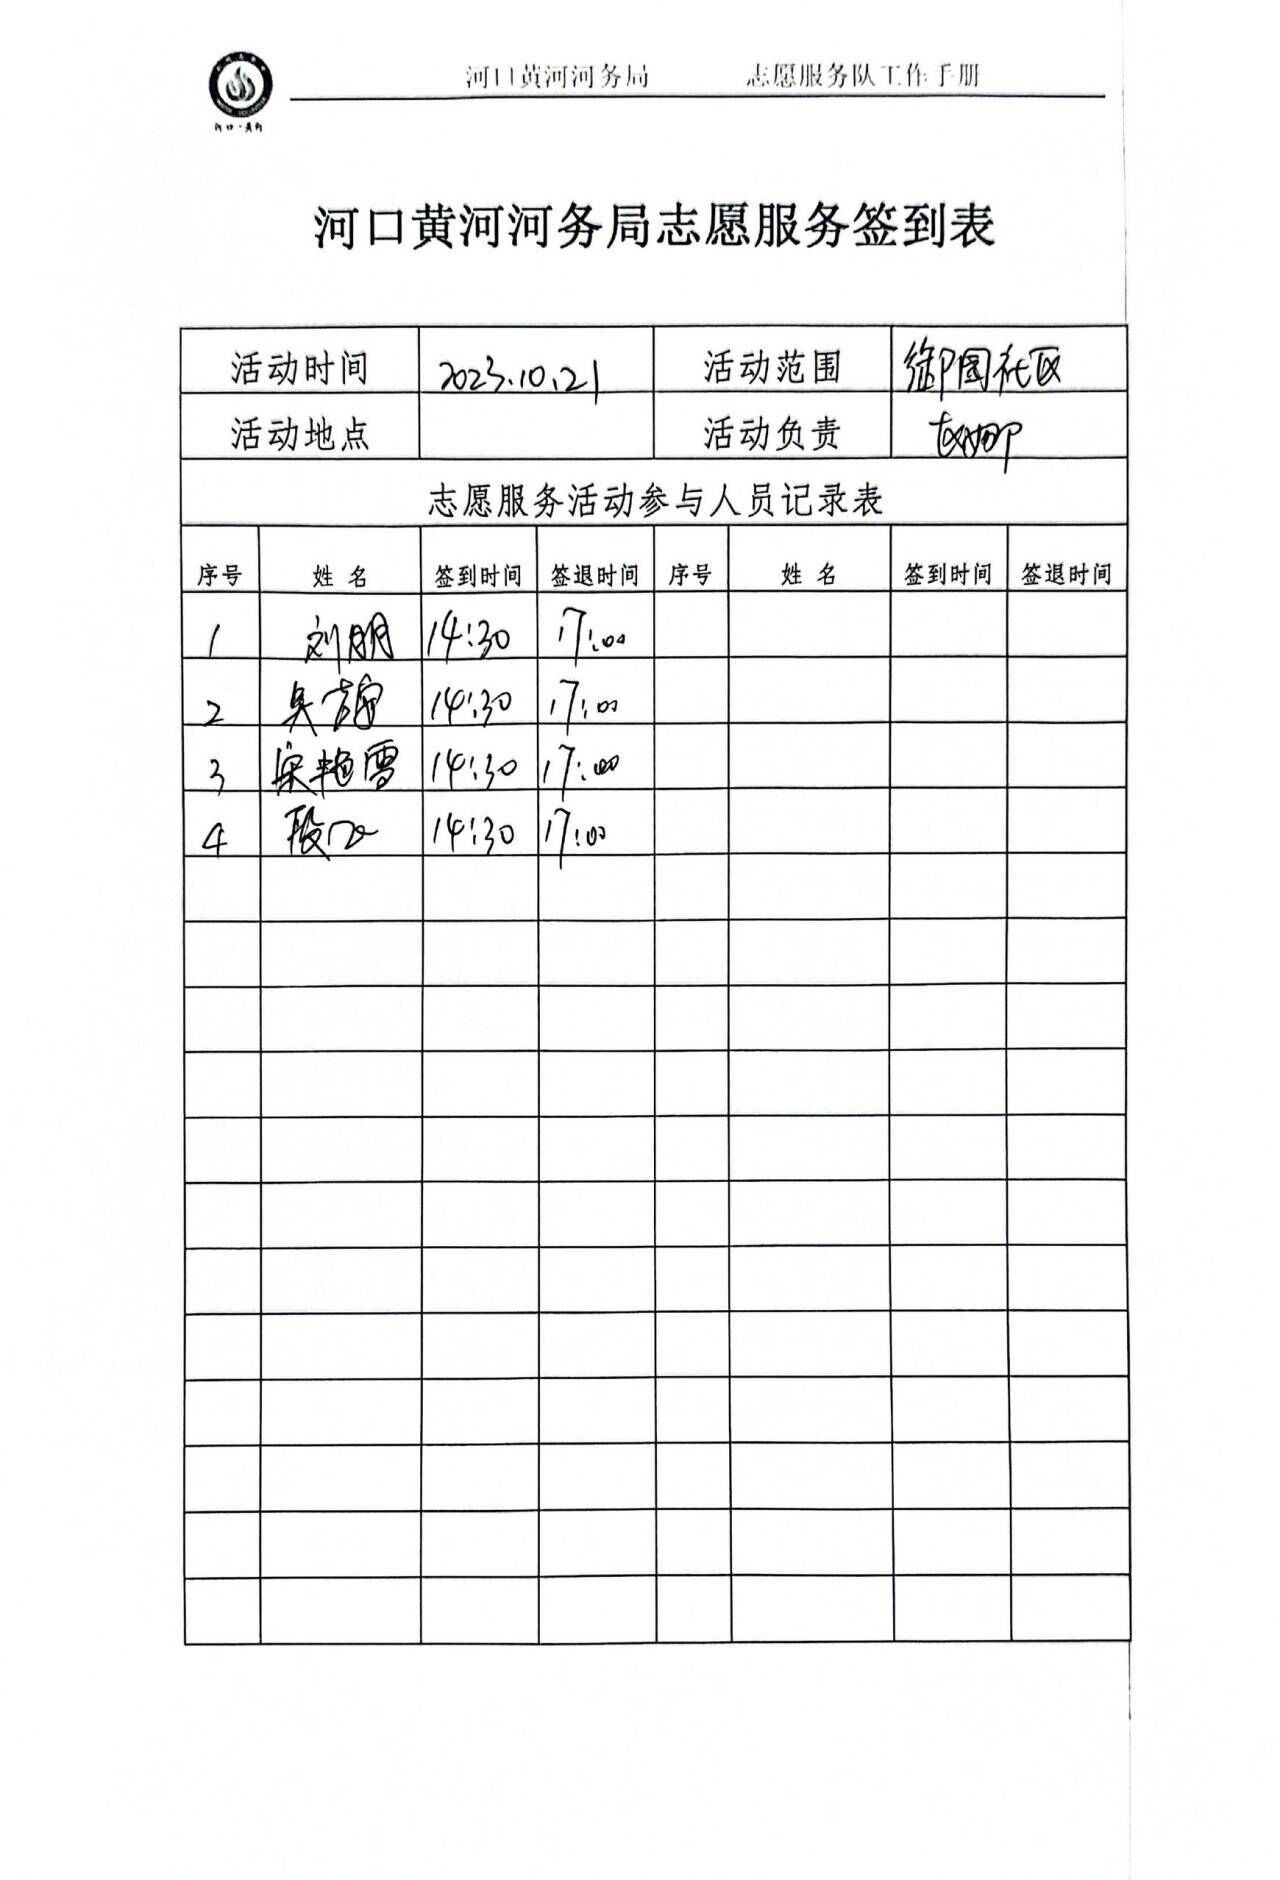 河口黄河河务局 志愿服务队工作手册
河口·黄河
河口黄河河务局志愿服务签到表
活动时间 2023.10.21 活动范围 御园社区
活动地点 活动负责
志愿服务活动参与人员记录表
序号 姓名 签到时间 签退时间 序号 姓名 签到时间 签退时间
1 刘朋 14:30 17:00
2 吴 14:30 17:00
3 宋艳雪 14:30 17:00
4 段 14:30 17:00